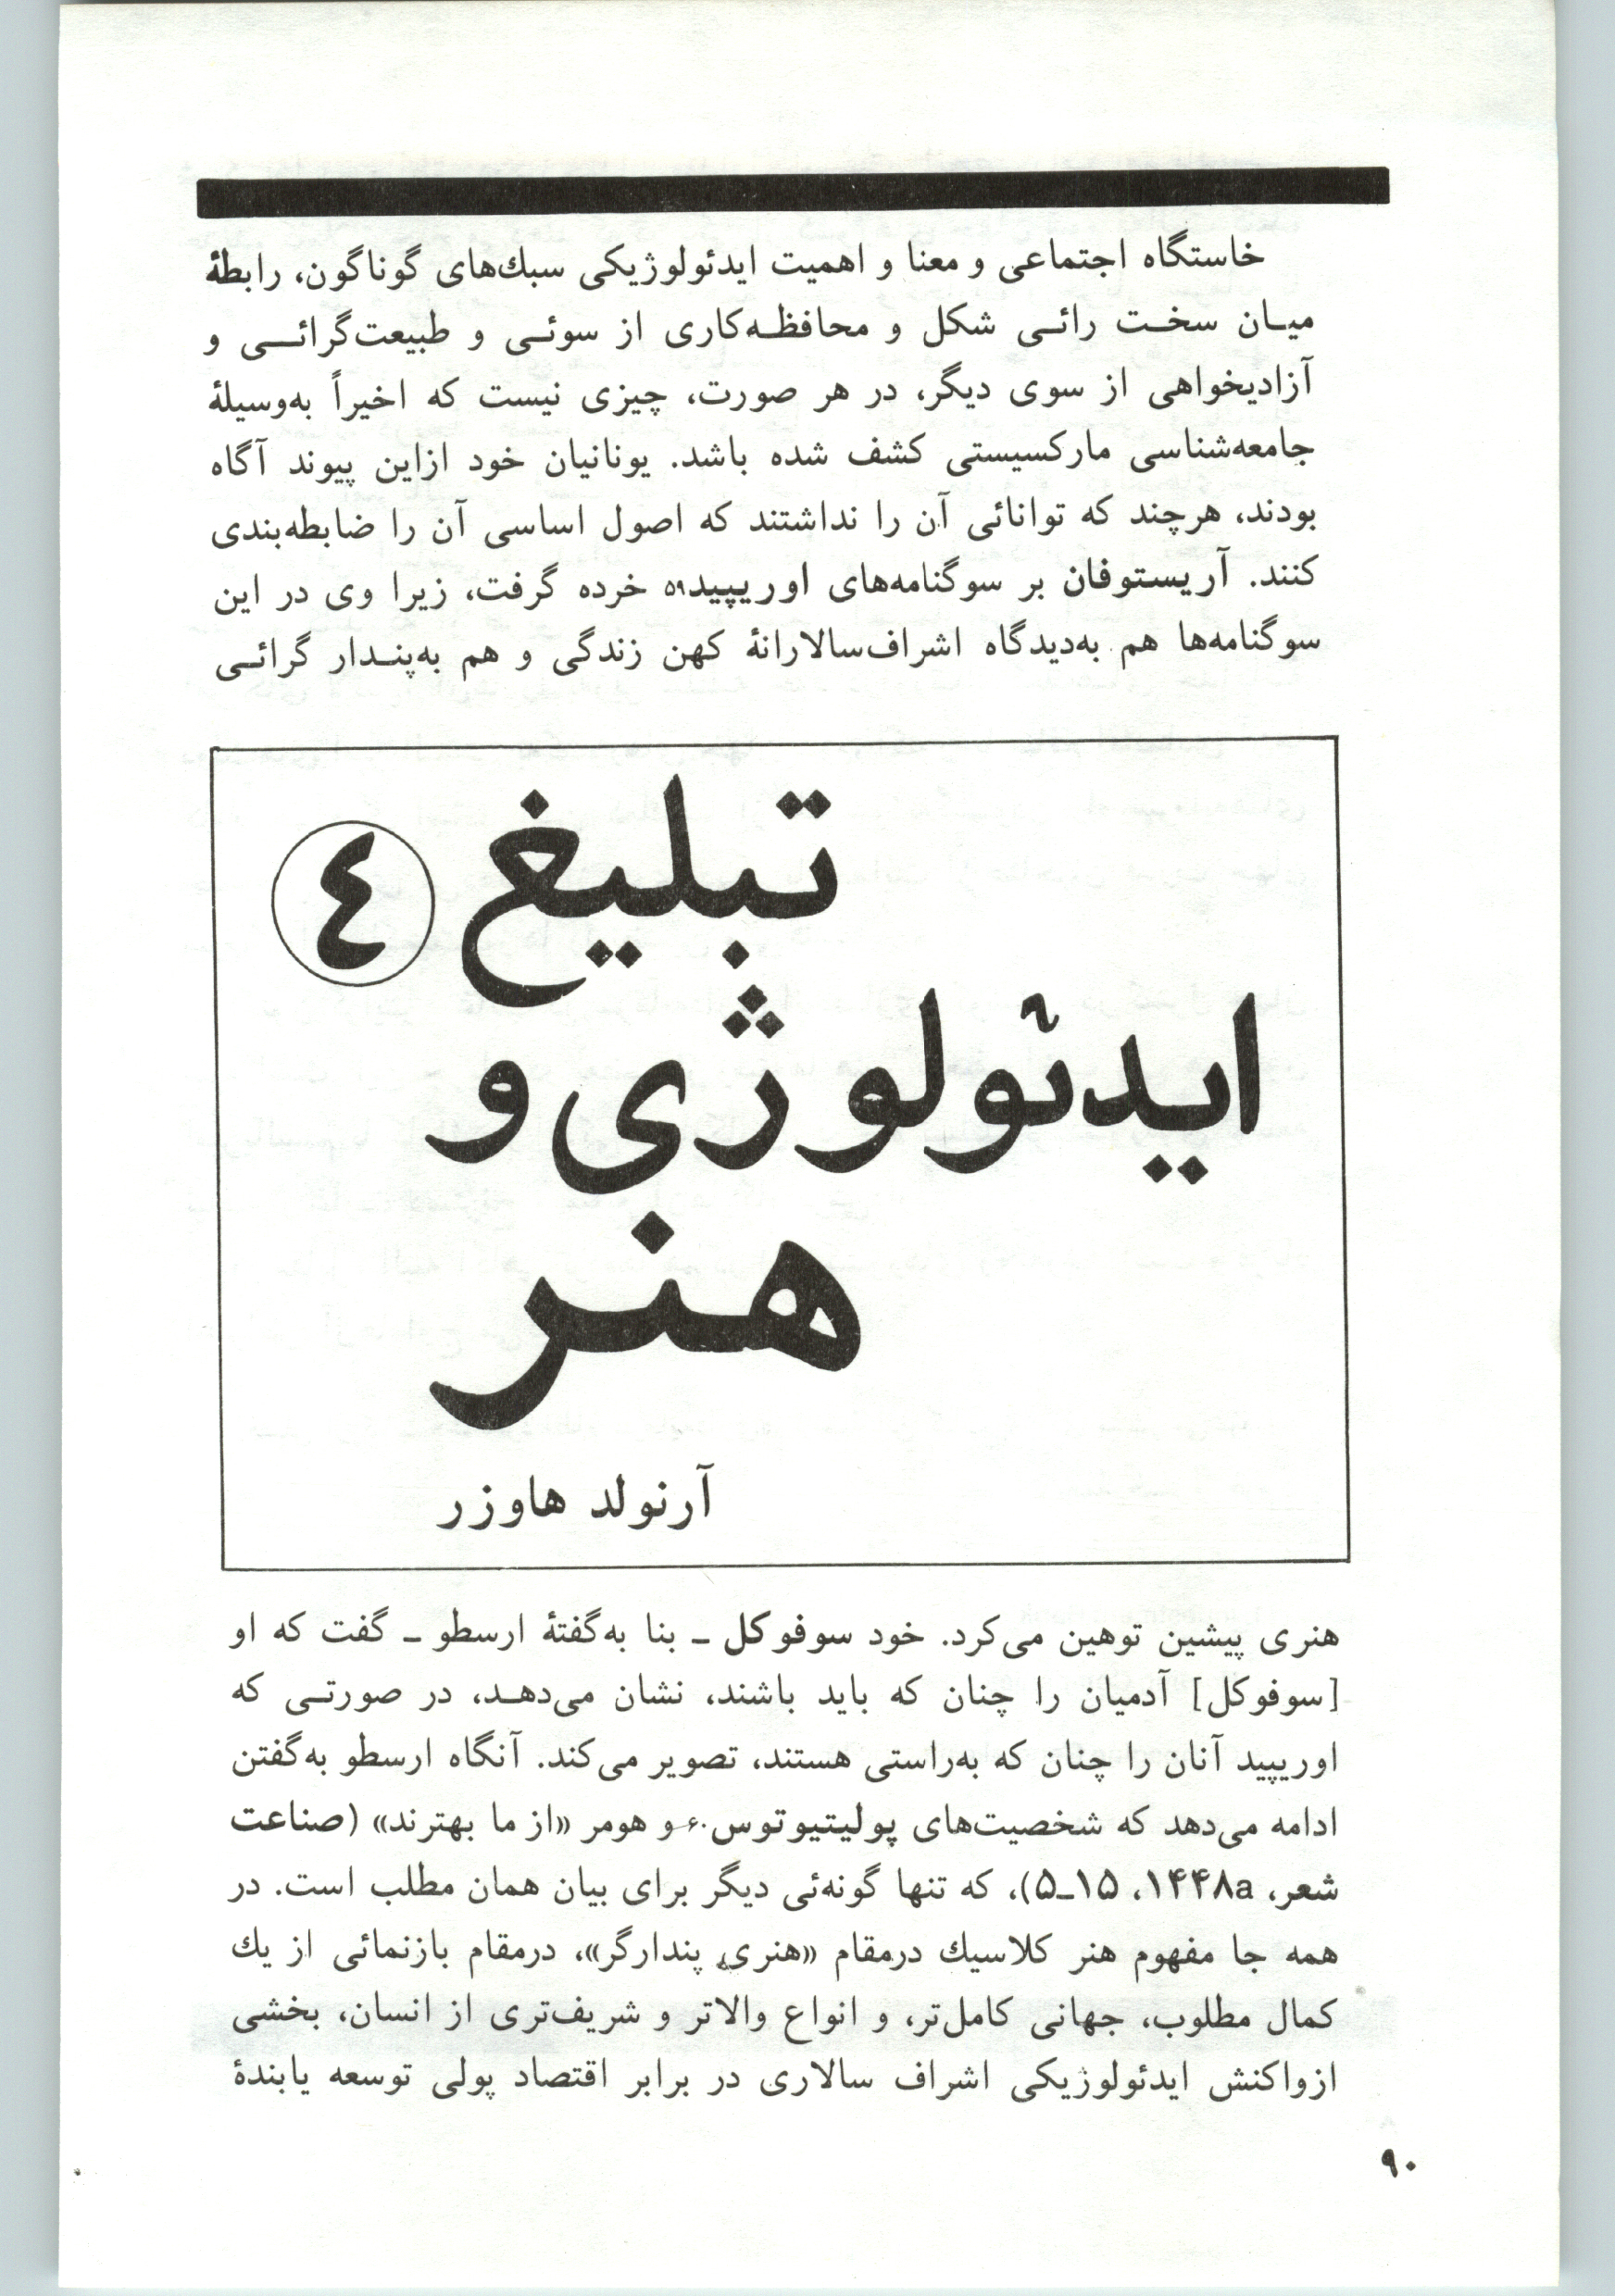 خاستگاه اجتماعی و معنا و اهمیت ایدئولوژیکی سبك‌های گوناگون، رابطهٔ
میـان سخـت رائـی شکل و محافظـه‌کاری از سوئـی و طبیعت‌گرائـی و
آزادیخواهی از سوی دیگر، در هر صورت، چیزی نیست که اخیراً به‌وسیلهٔ
جامعه‌شناسی مارکسیستی کشف شده باشد. یونانیان خود ازاین پیوند آگاه
بودند، هرچند که توانائی آن را نداشتند که اصول اساسی آن را ضابطه‌بندی
کنند. آریستوفان بر سوگنامه‌های اوریپید۵۹ خرده گرفت، زیرا وی در این
سوگنامه‌ها هم به‌دیدگاه اشراف‌سالارانهٔ کهن زندگی و هم به‌پنـدار گرائـی
تبلیغ ٤
ایدئولوژی و
هنر
آرنولد هاوزر
هنری پیشین توهین می‌کرد. خود سوفوکل ـ بنا به‌گفتهٔ ارسطو ـ گفت که او
[سوفوکل] آدمیان را چنان که باید باشند، نشان می‌دهـد، در صورتـی که
اوریپید آنان را چنان که به‌راستی هستند، تصویر می‌کند. آنگاه ارسطو به‌گفتن
ادامه می‌دهد که شخصیت‌های پولیتیوتوس۶۰ و هومر «از ما بهترند» (صناعت
شعر، ۱۴۴۸a، ۱۵ـ۵)، که تنها گونه‌ئی دیگر برای بیان همان مطلب است. در
همه جا مفهوم هنر کلاسیك درمقام «هنری پندارگر»، درمقام بازنمائی از یك
کمال مطلوب، جهانی کامل‌تر، و انواع والاتر و شریف‌تری از انسان، بخشی
ازواکنش ایدئولوژیکی اشراف سالاری در برابر اقتصاد پولی توسعه یابندهٔ
۹۰